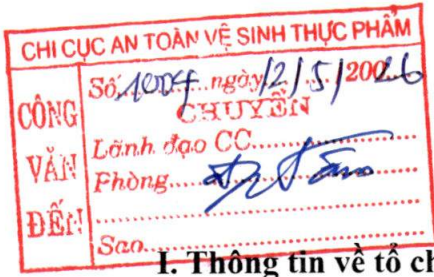 CHI CỤC AN TOÀN VỆ SINH THỰC PHẨM
CÔNG VĂN ĐẾN
Số: 1004 ngày 12/5/2026
CHUYỂN
Lãnh đạo CC
Phòng
Sao
I. Thông tin về tổ ch